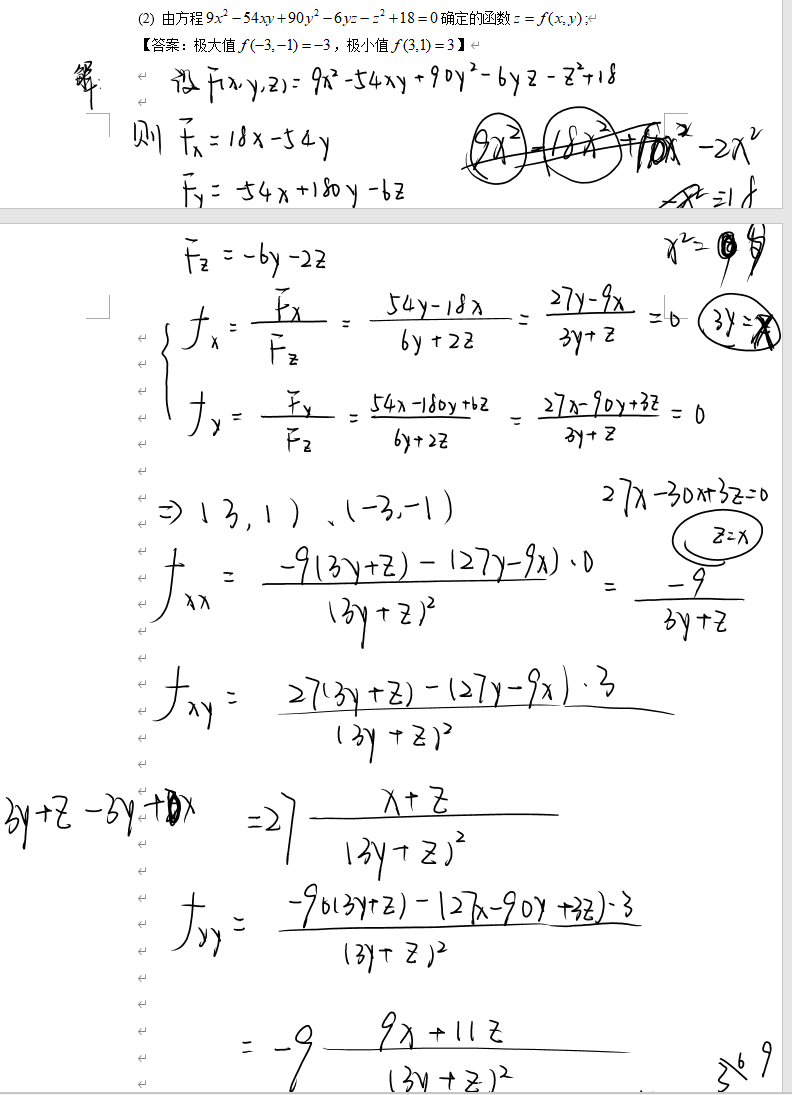 (2) 由方程9x²−54xy+90y²−6yz−z²+18=0确定的函数z=f(x,y);
【答案：极大值f(−3,−1)=−3，极小值f(3,1)=3】
解: 设F(x,y,z)=9x²-54xy+90y²-6yz-z²+18
则 Fx=18x-54y
9x²-18x²+10x²-2x²
Fy=-54x+180y-6z
-x²=18
Fz=-6y-2z
x²=9
fx=Fx/Fz=(54y-18x)/(6y+2z)=(27y-9x)/(3y+z)=0 3y=x
fy=Fy/Fz=(54x-180y+6z)/(6y+2z)=(27x-90y+3z)/(3y+z)=0
27x-30x+3z=0
⇒(3,1)、(-3,-1)
z=x
fxx=(-9(3y+z)-(27y-9x)·0)/(3y+z)²=-9/(3y+z)
fxy=(27(3y+z)-(27y-9x)·3)/(3y+z)²
3y+z-3y+x
=27(x+z)/(3y+z)²
fyy=(-90(3y+z)-(27x-90y+3z)·3)/(3y+z)²
=-9(9x+11z)/(3y+z)²
3 6 9